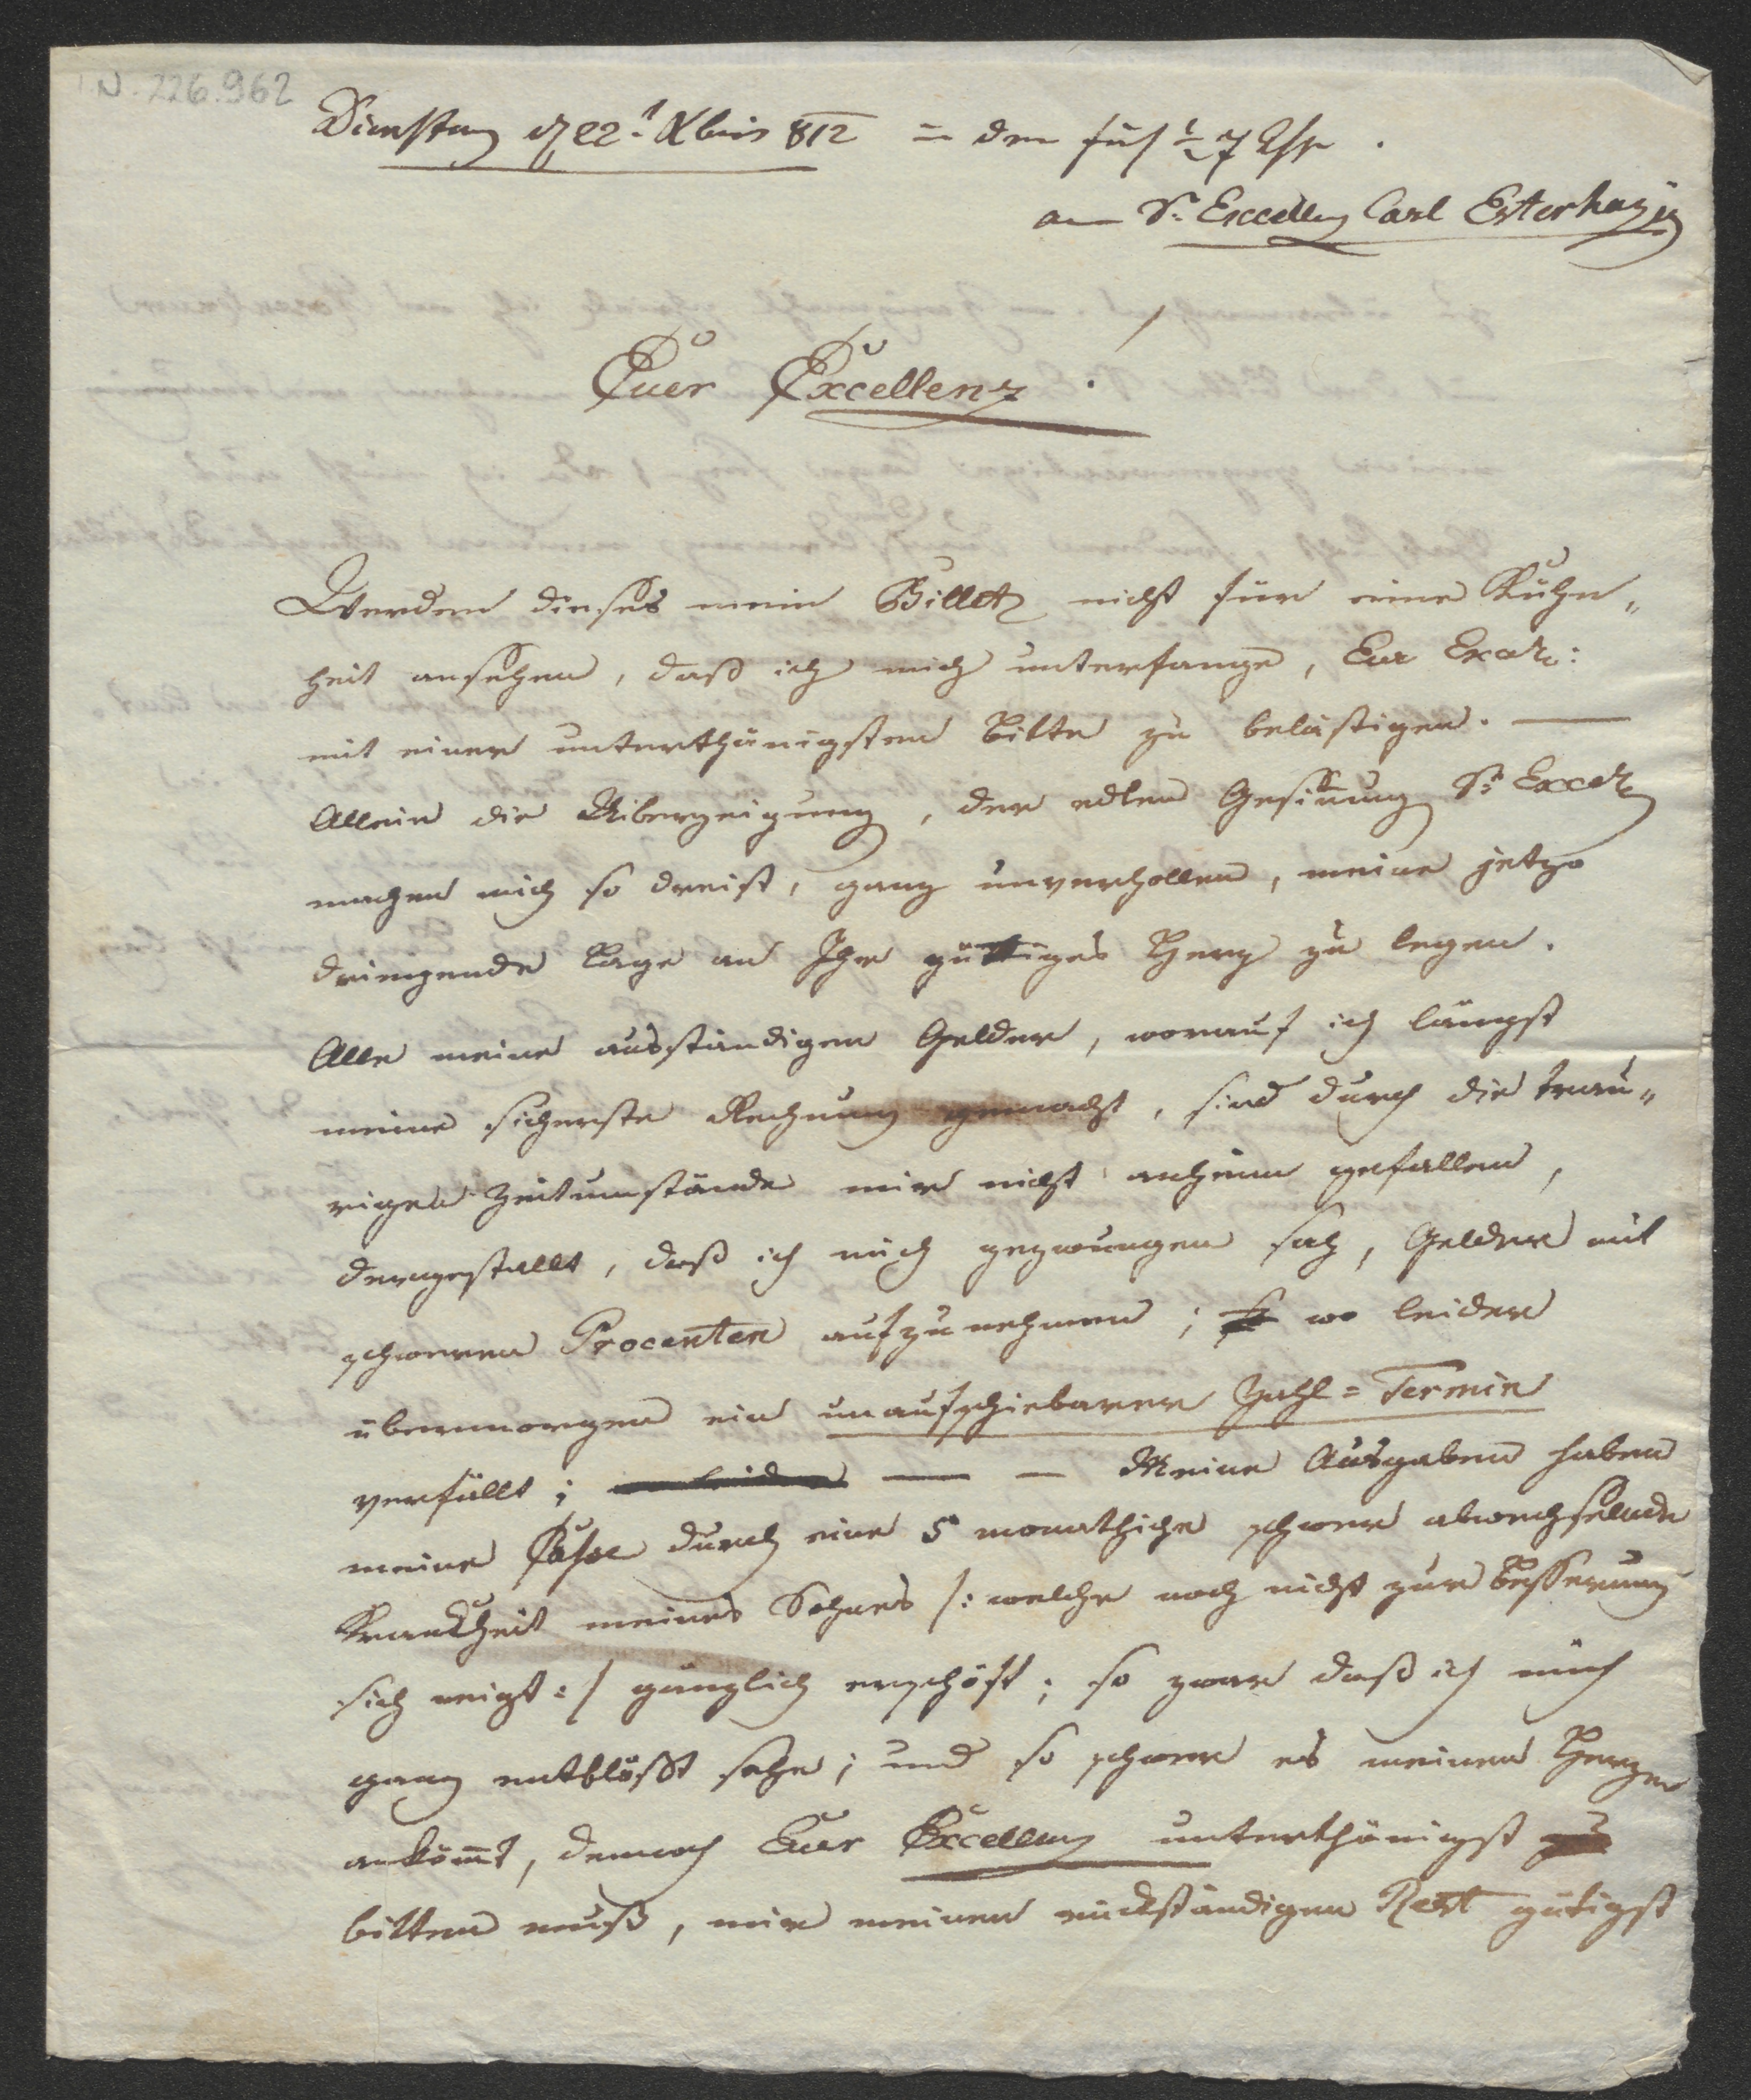 I.N. 226.962
Dienstag d 22t Xbris 812 in der früh ½ 7 Uhr.
an Sr Excellenz Carl Esterhazy
Euer Excellenz!
Werden dieses mein Billet nicht für eine Kühn„
heit ansehen, daß ich mich unterfange, Eur Excellz:
mit einer unterthänigsten Bitte zu belästigen. —
Allein die Uiberzeigung, der edlen Gesin̅ung Sr Excellz
machen mich so dreist, ganz unverhollen, meine jetzo
dringende Lage an Ihr güttiges Herz zu legen.
Alle meine ausständigen Gelder, worauf ich längst
meine sicherste Rechnung gemacht, sind durch die trau„
rigen Zeitumstände mir nicht anheim gefallen,
dergestallt, daß ich mich gezwungen sah, Gelder mit
schweren Procenten aufzunehmen; wo leider
übermorgen ein unaufschiebarer Zahl=Termin
verfällt; leider — — Meine Ausgaben haben
meine Casse durch eine 5 monathliche schwer abwechselnde
Krankheit meines Sohnes /: welche noch nicht zur Besserung
sich neigt :/ gänzlich erschöft; so zwar daß ich mich
ganz entblößt sehe; und so schwer es meinen Herzen
anköm̅t, dennoch Euer Excellenz unterthänigst zu
bitten muß, mir meinen rückständigen Rest gütigst